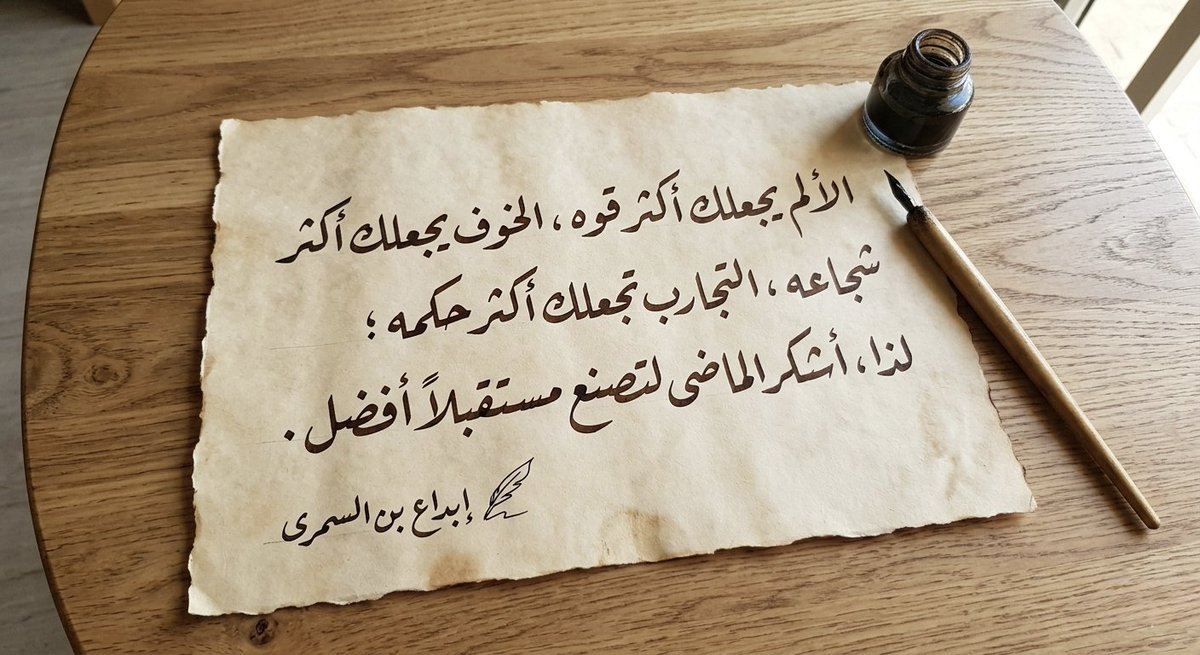 الألم يجعلك أكثر قوه، الخوف يجعلك أكثر
شجاعه، التجارب تجعلك أكثر حكمه؛
لذا، أشكر الماضى لتصنع مستقبلاً أفضل.
إبداع بن السمرى